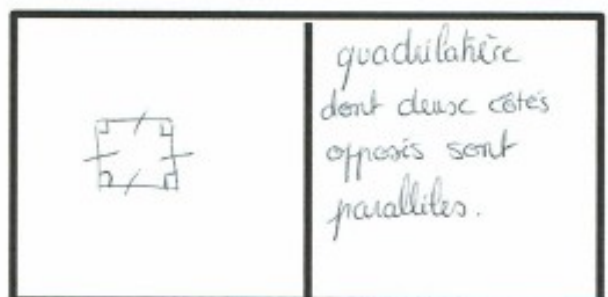 quadrilatère
dont deux côtés
opposés sont
parallèles.